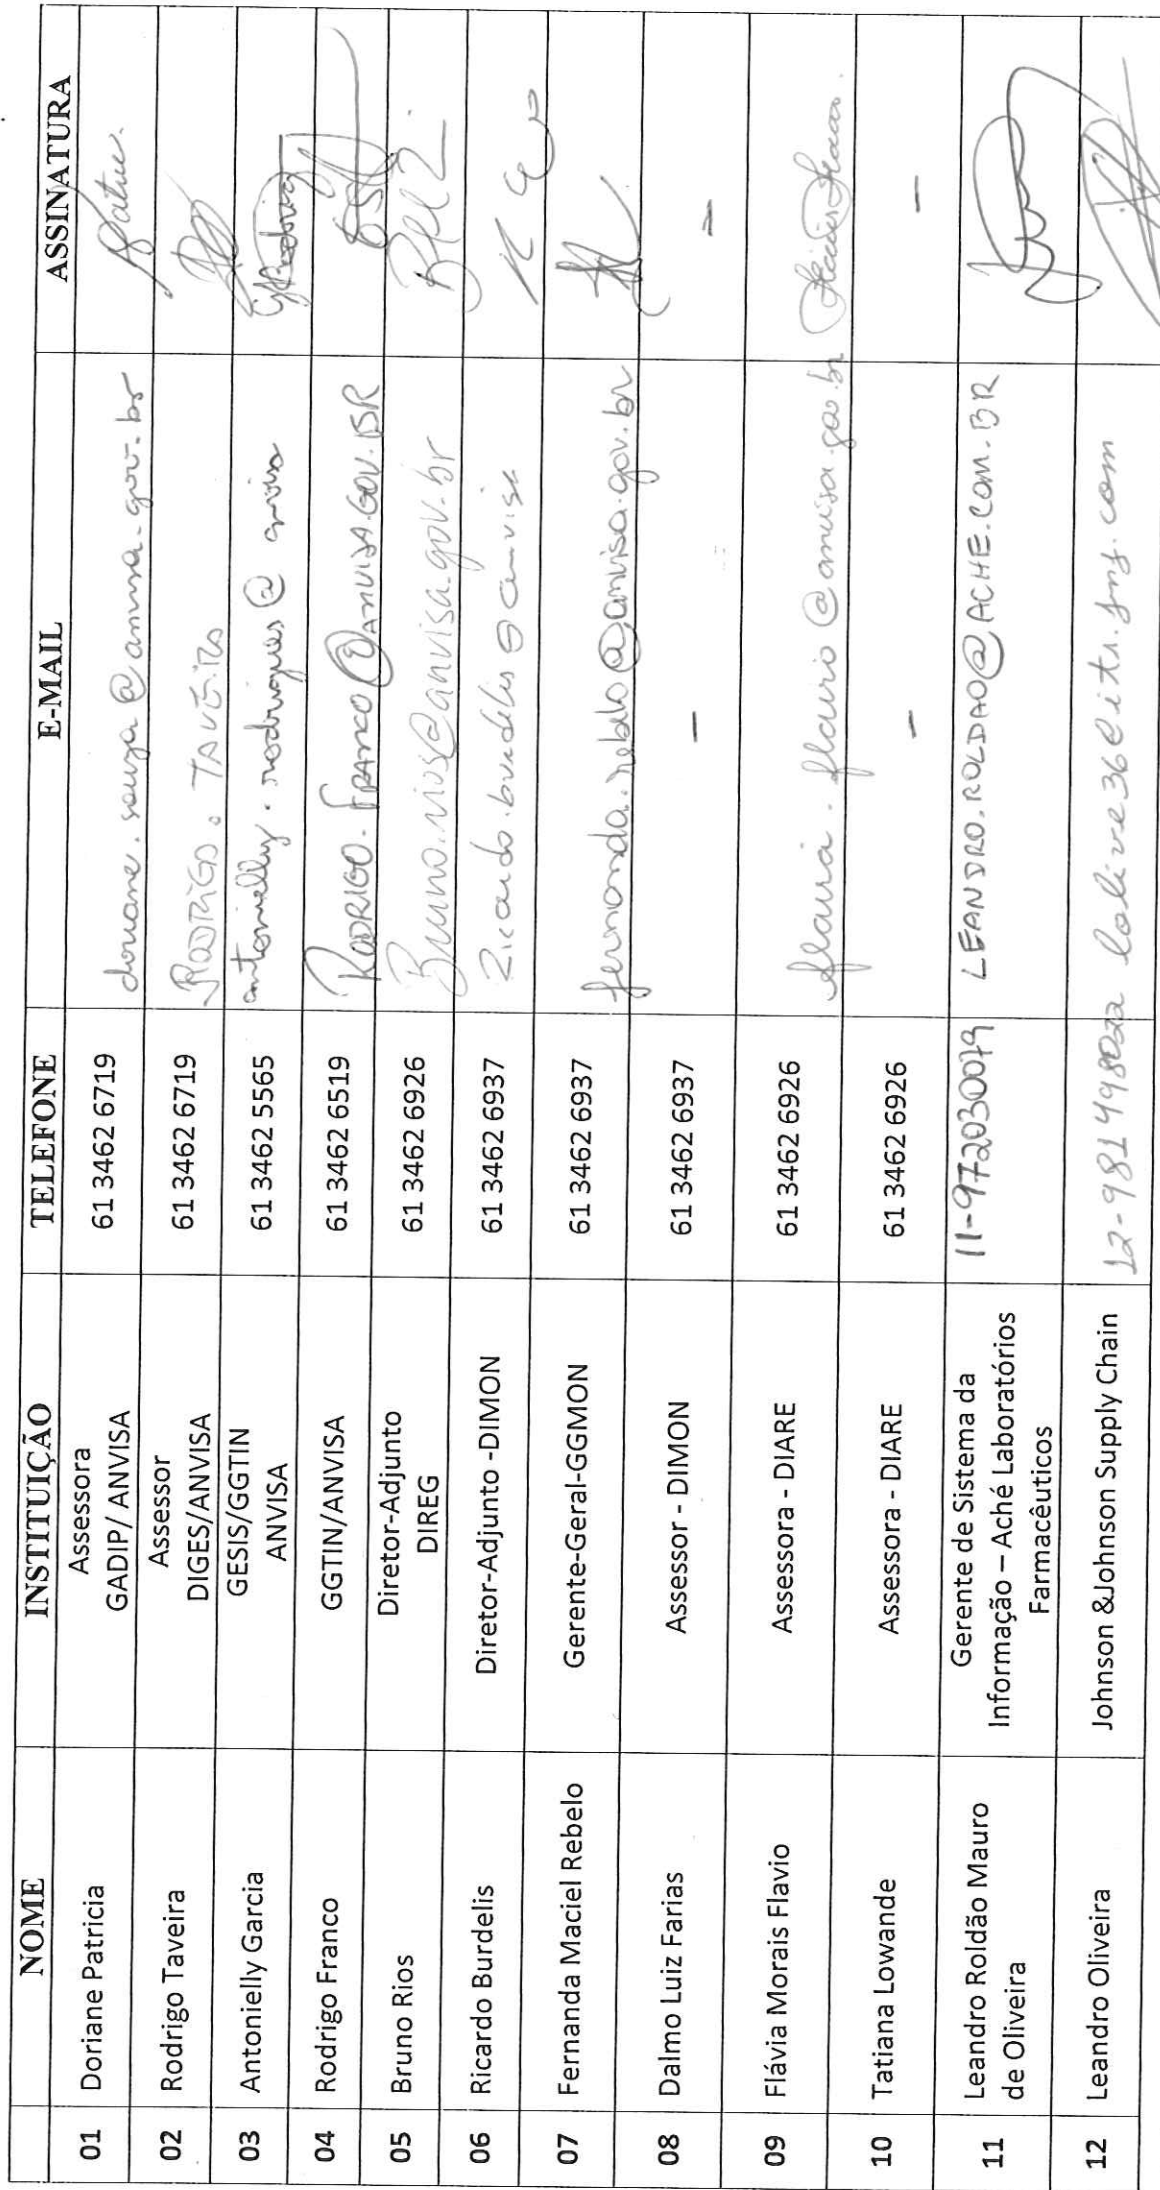 NOME INSTITUIÇÃO TELEFONE E-MAIL ASSINATURA
01 Doriane Patricia Assessora GADIP/ ANVISA 61 3462 6719 doriane.souza@anvisa.gov.br
02 Rodrigo Taveira Assessor DIGES/ANVISA 61 3462 6719 RODRIGO.TAVEIRA
03 Antonielly Garcia GESIS/GGTIN ANVISA 61 3462 5565 antonielly.rodrigues@anvisa
04 Rodrigo Franco GGTIN/ANVISA 61 3462 6519 RODRIGO.FRANCO@ANVISA.GOV.BR
05 Bruno Rios Diretor-Adjunto DIREG 61 3462 6926 Bruno.rios@anvisa.gov.br
06 Ricardo Burdelis Diretor-Adjunto -DIMON 61 3462 6937 Ricardo.burdelis@anvisa
07 Fernanda Maciel Rebelo Gerente-Geral-GGMON 61 3462 6937 fernanda.rebelo@anvisa.gov.br
08 Dalmo Luiz Farias Assessor - DIMON 61 3462 6937 - -
09 Flávia Morais Flavio Assessora - DIARE 61 3462 6926 flavia.flavio@anvisa.gov.br
10 Tatiana Lowande Assessora - DIARE 61 3462 6926 - -
11 Leandro Roldão Mauro de Oliveira Gerente de Sistema da Informação – Aché Laboratórios Farmacêuticos 11-972030079 LEANDRO.ROLDAO@ACHE.COM.BR
12 Leandro Oliveira Johnson &Johnson Supply Chain